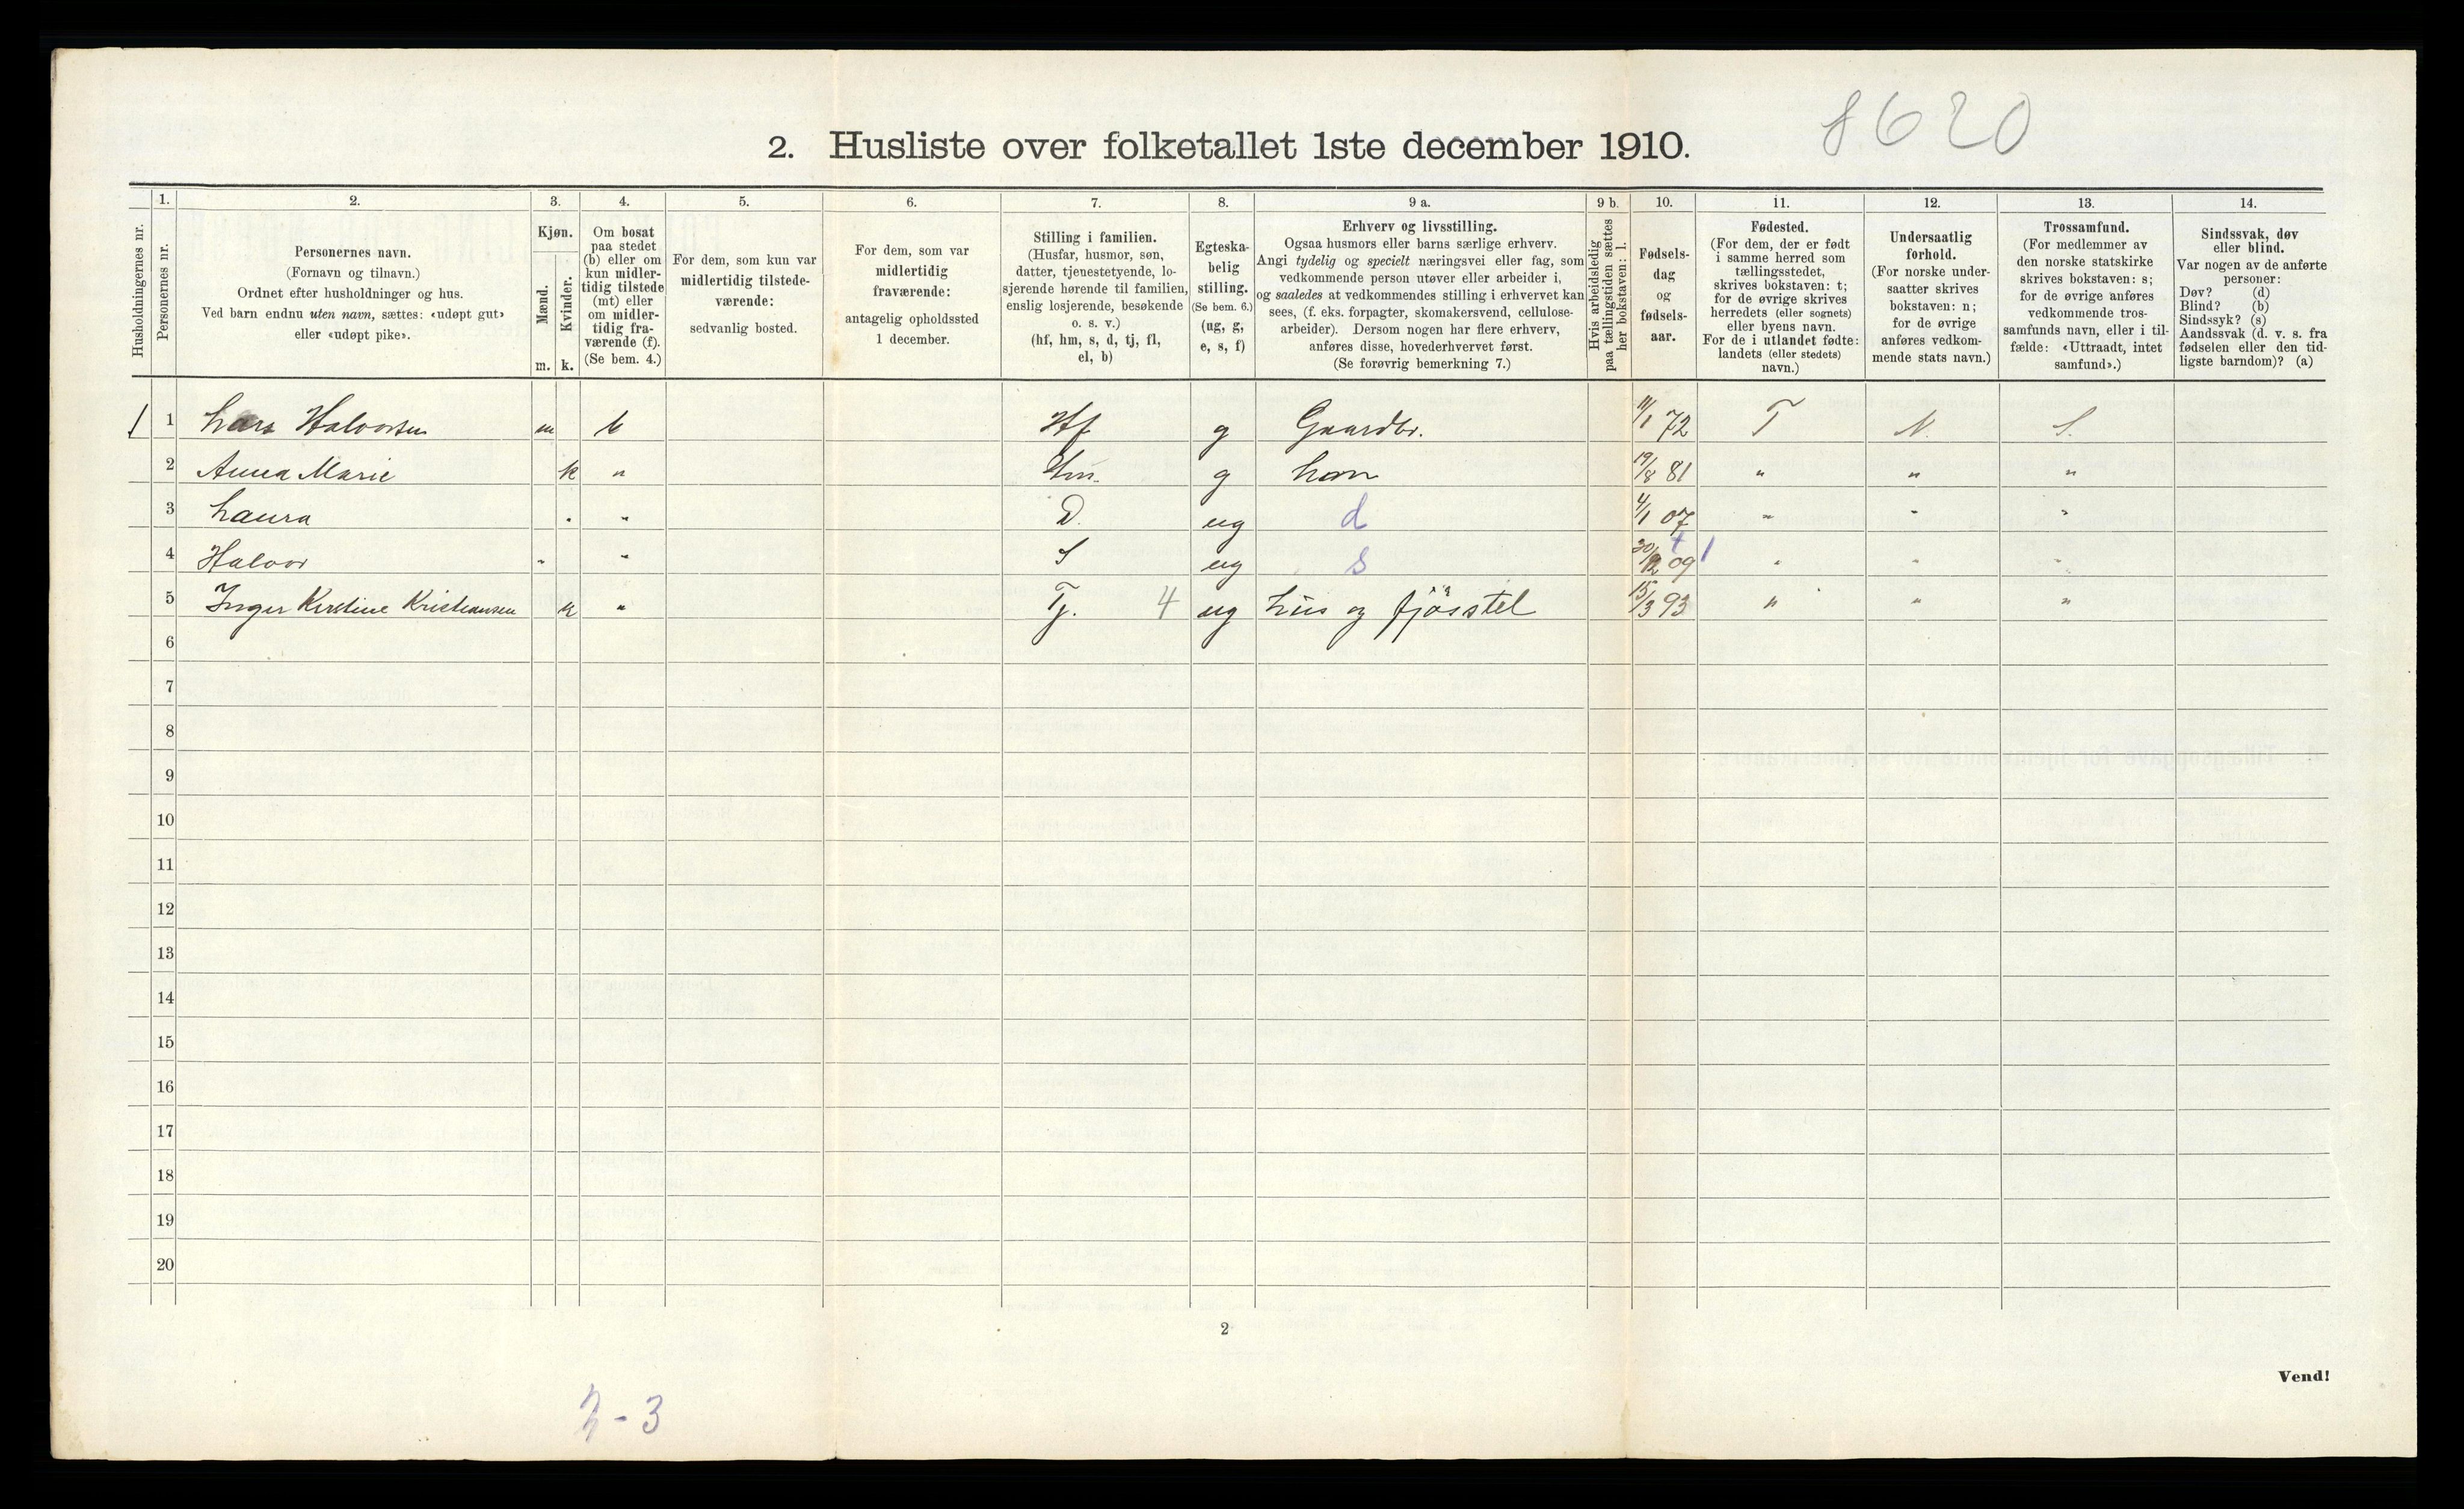 8620
2. Husliste over folketallet 1ste december 1910.
Husholdningernes nr.
1.
Personernes nr.
2.
Personernes navn.
(Fornavn og tilnavn.)
Ordnet efter husholdninger og hus.
Ved barn endnu uten navn, sættes: «udøpt gut»
eller «udøpt pike».
3.
Kjøn.
Mænd.
m.
Kvinder.
k.
4.
Om bosat
paa stedet
(b) eller om
kun midler-
tidig tilstede
(mt) eller
om midler-
tidig fra-
værende (f).
(Se bem. 4.)
5.
For dem, som kun var
midlertidig tilstede-
værende:
sedvanlig bosted.
6.
For dem, som var
midlertidig
fraværende:
antagelig opholdssted
1 december.
7.
Stilling i familien.
(Husfar, husmor, søn,
datter, tjenestetyende, lo-
sjerende hørende til familien,
enslig losjerende, besøkende
o. s. v.)
(hf, hm, s, d, tj, fl,
el, b)
8.
Egteska-
belig
stilling.
(Se bem. 6.)
(ug, g,
e, s, f)
9 a.
Erhverv og livsstilling.
Ogsaa husmors eller barns særlige erhverv.
Angi tydelig og specielt næringsvei eller fag, som
vedkommende person utøver eller arbeider i,
og saaledes at vedkommendes stilling i erhvervet kan
sees, (f. eks. forpagter, skomakersvend, cellulose-
arbeider). Dersom nogen har flere erhverv,
anføres disse, hovederhvervet først.
(Se forøvrig bemerkning 7.)
9 b.
Hvis arbeidsledig
paa tællingstiden sættes
her bokstaven: l.
10.
Fødsels-
dag
og
fødsels-
aar.
11.
Fødested.
(For dem, der er født
i samme herred som
tællingsstedet,
skrives bokstaven: t;
for de øvrige skrives
herredets (eller sognets)
eller byens navn.
For de i utlandet fødte:
landets (eller stedets)
navn.)
12.
Undersaatlig
forhold.
(For norske under-
saatter skrives
bokstaven: n;
for de øvrige
anføres vedkom-
mende stats navn.)
13.
Trossamfund.
(For medlemmer av
den norske statskirke
skrives bokstaven: s;
for de øvrige anføres
vedkommende tros-
samfunds navn, eller i til-
fælde: «Uttraadt, intet
samfund».)
14.
Sindssvak, døv
eller blind.
Var nogen av de anførte
personer:
Døv? (d)
Blind? (b)
Sindssyk? (s)
Aandssvak (d. v. s. fra
fødselen eller den tid-
ligste barndom)? (a)
1 1 Lars Halvorsen m b Hf g Gaardbr. 11/1 72 T N. S.
2 Anna Marie k " Hm. g hm 19/8 81 " " "
3 Laura " " D. ug d 4/1 07 " " "
4 Halvor " " S ug s 20/12 09 1 " " "
5 Inger Kirstine Kristiansen k " Tj. 4 ug hus og fjösstel 15/3 93 " " "
6
7
8
9
10
11
12
13
14
15
16
17
18
19
20
2
Vend!
2-3